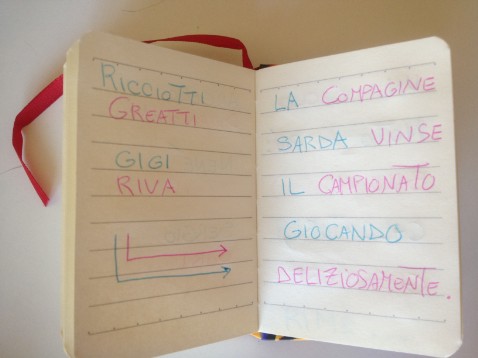 RICCIOTTI
GREATTI
GIGI
RIVA
LA COMPAGINE
SARDA VINSE
IL CAMPIONATO
GIOCANDO
DELIZIOSAMENTE.